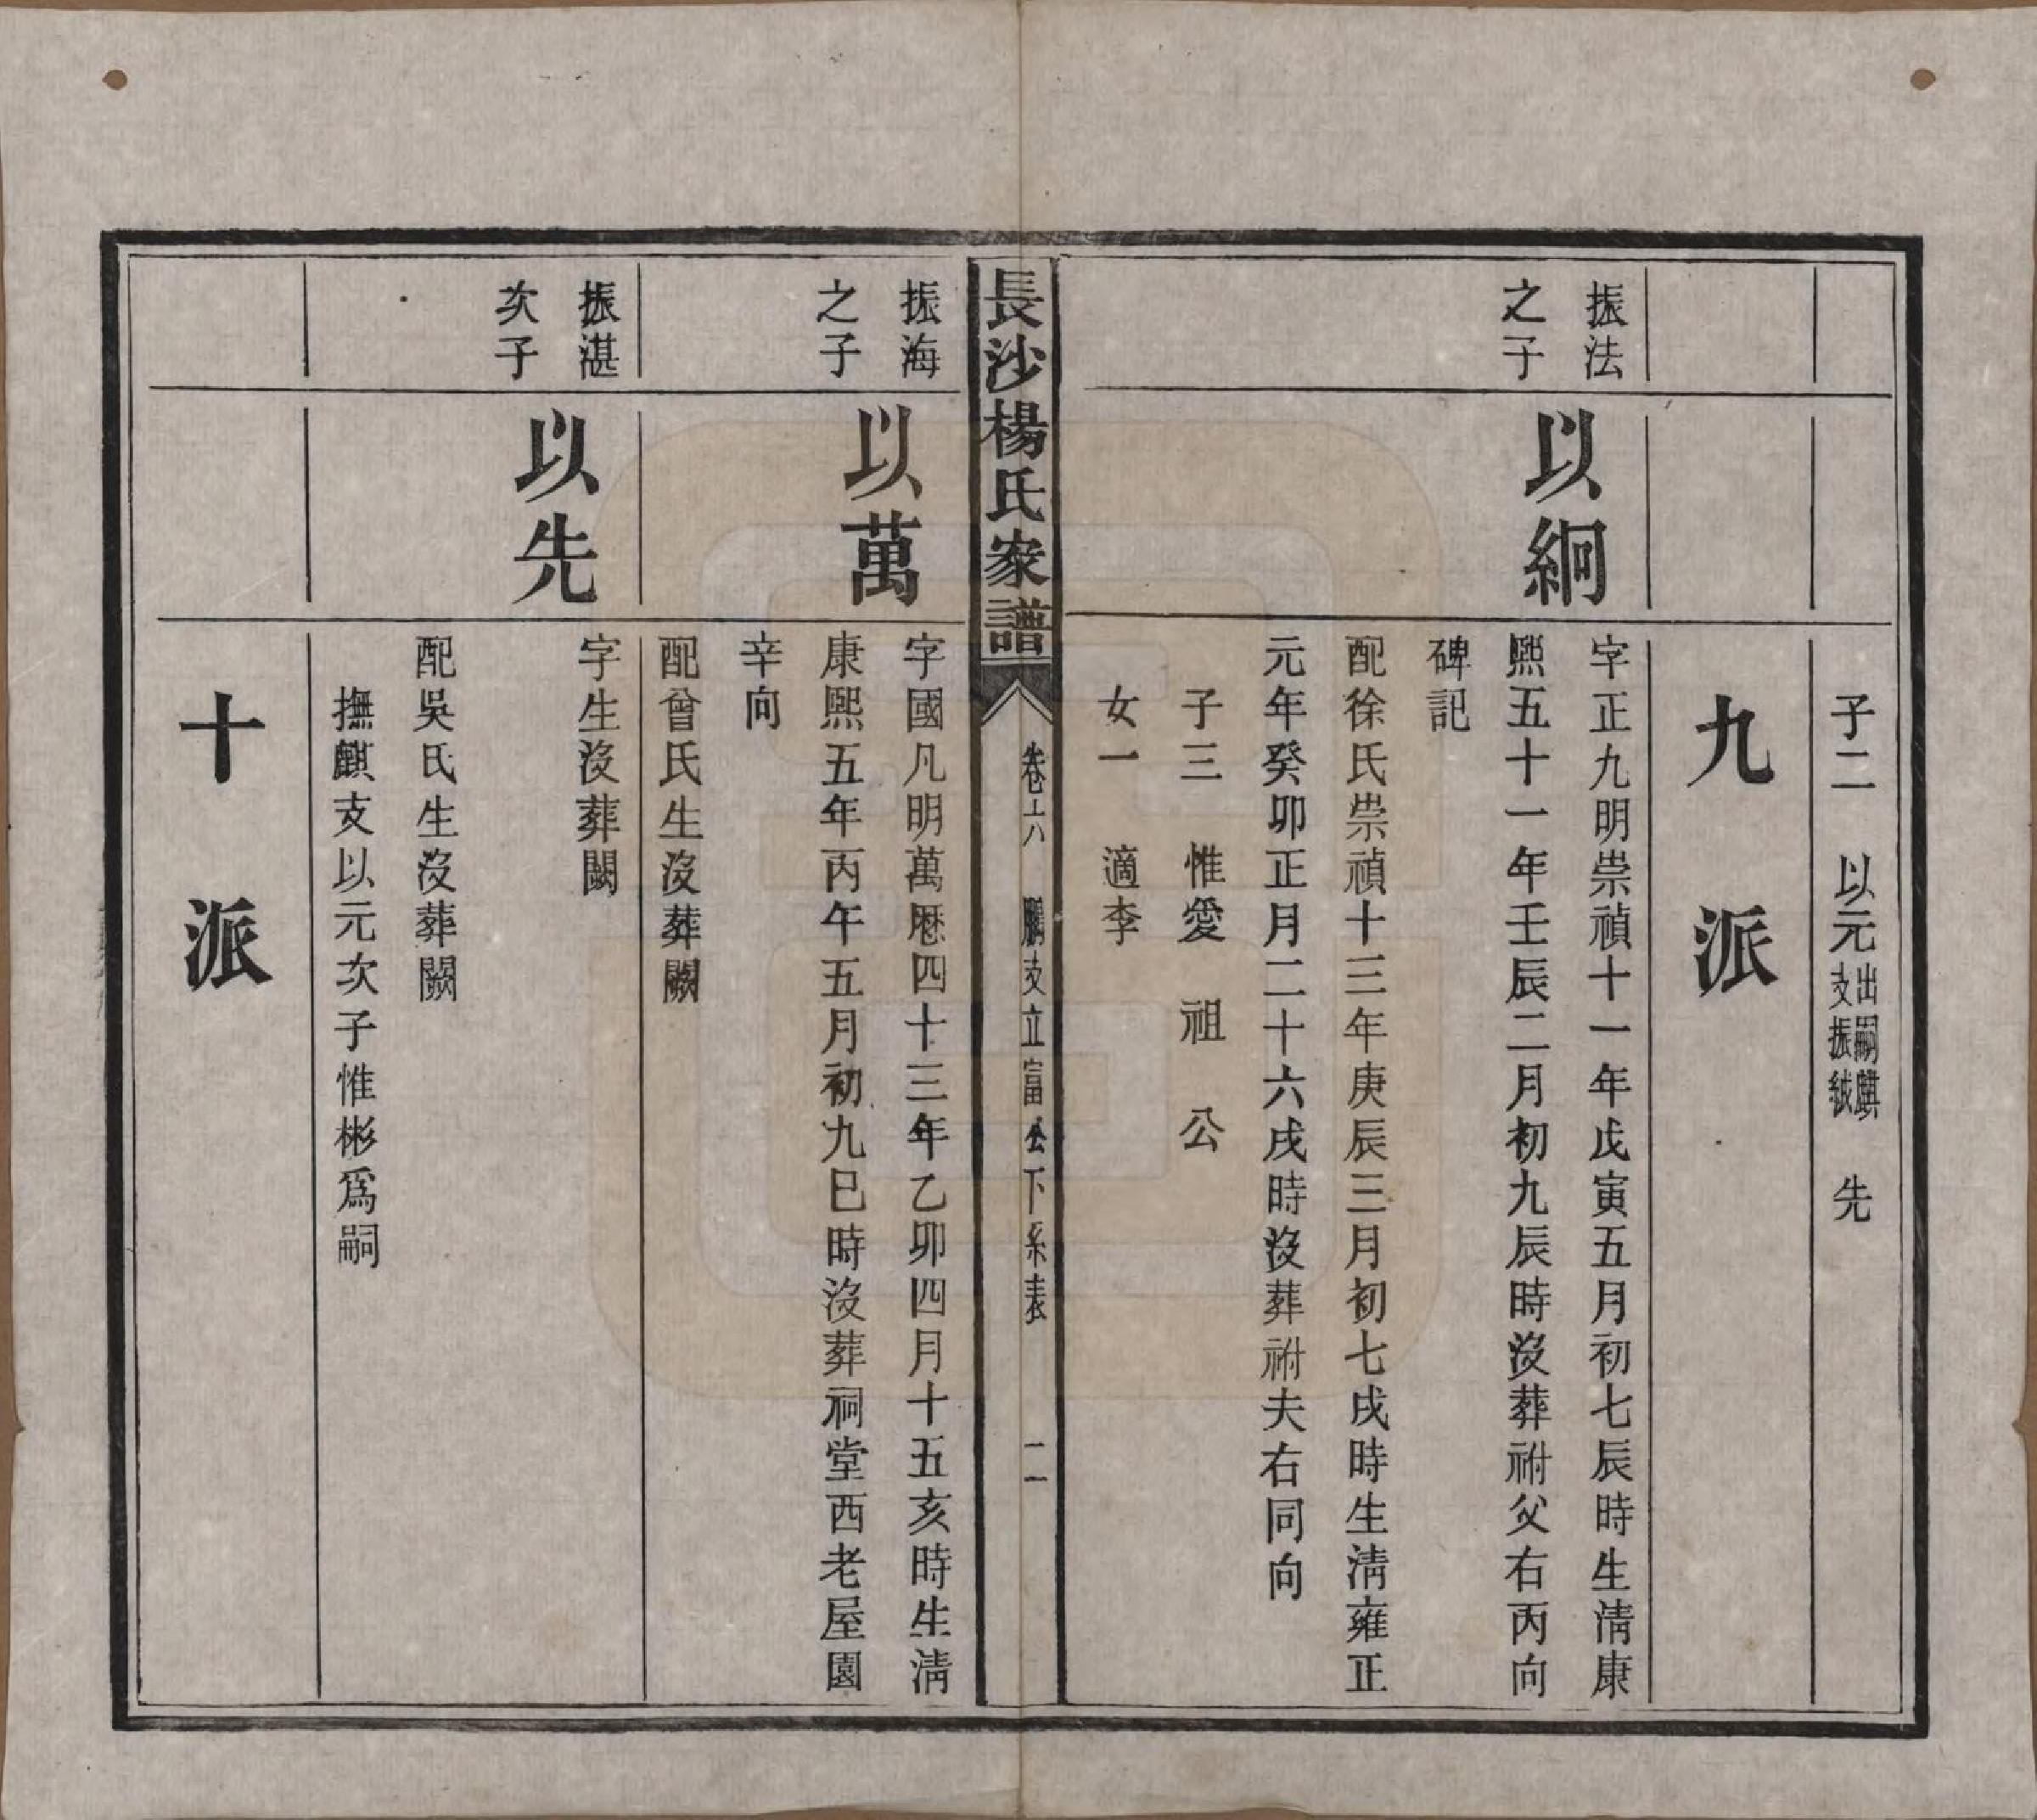 子二　以元出嗣麒支振紱　先
九派
振法之子
以絅
字正九明崇禎十一年戊寅五月初七辰時生清康
熙五十一年壬辰二月初九辰時沒葬祔父右丙向
碑記
配徐氏崇禎十三年庚辰三月初七戌時生清雍正
元年癸卯正月二十六戌時沒葬祔夫右同向
子三　惟愛　祖　公
女一　適李
長沙楊氏家譜　卷六　鵬支立富公下系表　二
振海之子
以萬
字國凡明萬厯四十三年乙卯四月十五亥時生清
康熙五年丙午五月初九巳時沒葬祠堂西老屋園
辛向
配曾氏生沒葬闕
振湛次子
以先
字生沒葬闕
配吳氏生沒葬闕
撫麒支以元次子惟彬爲嗣
十派